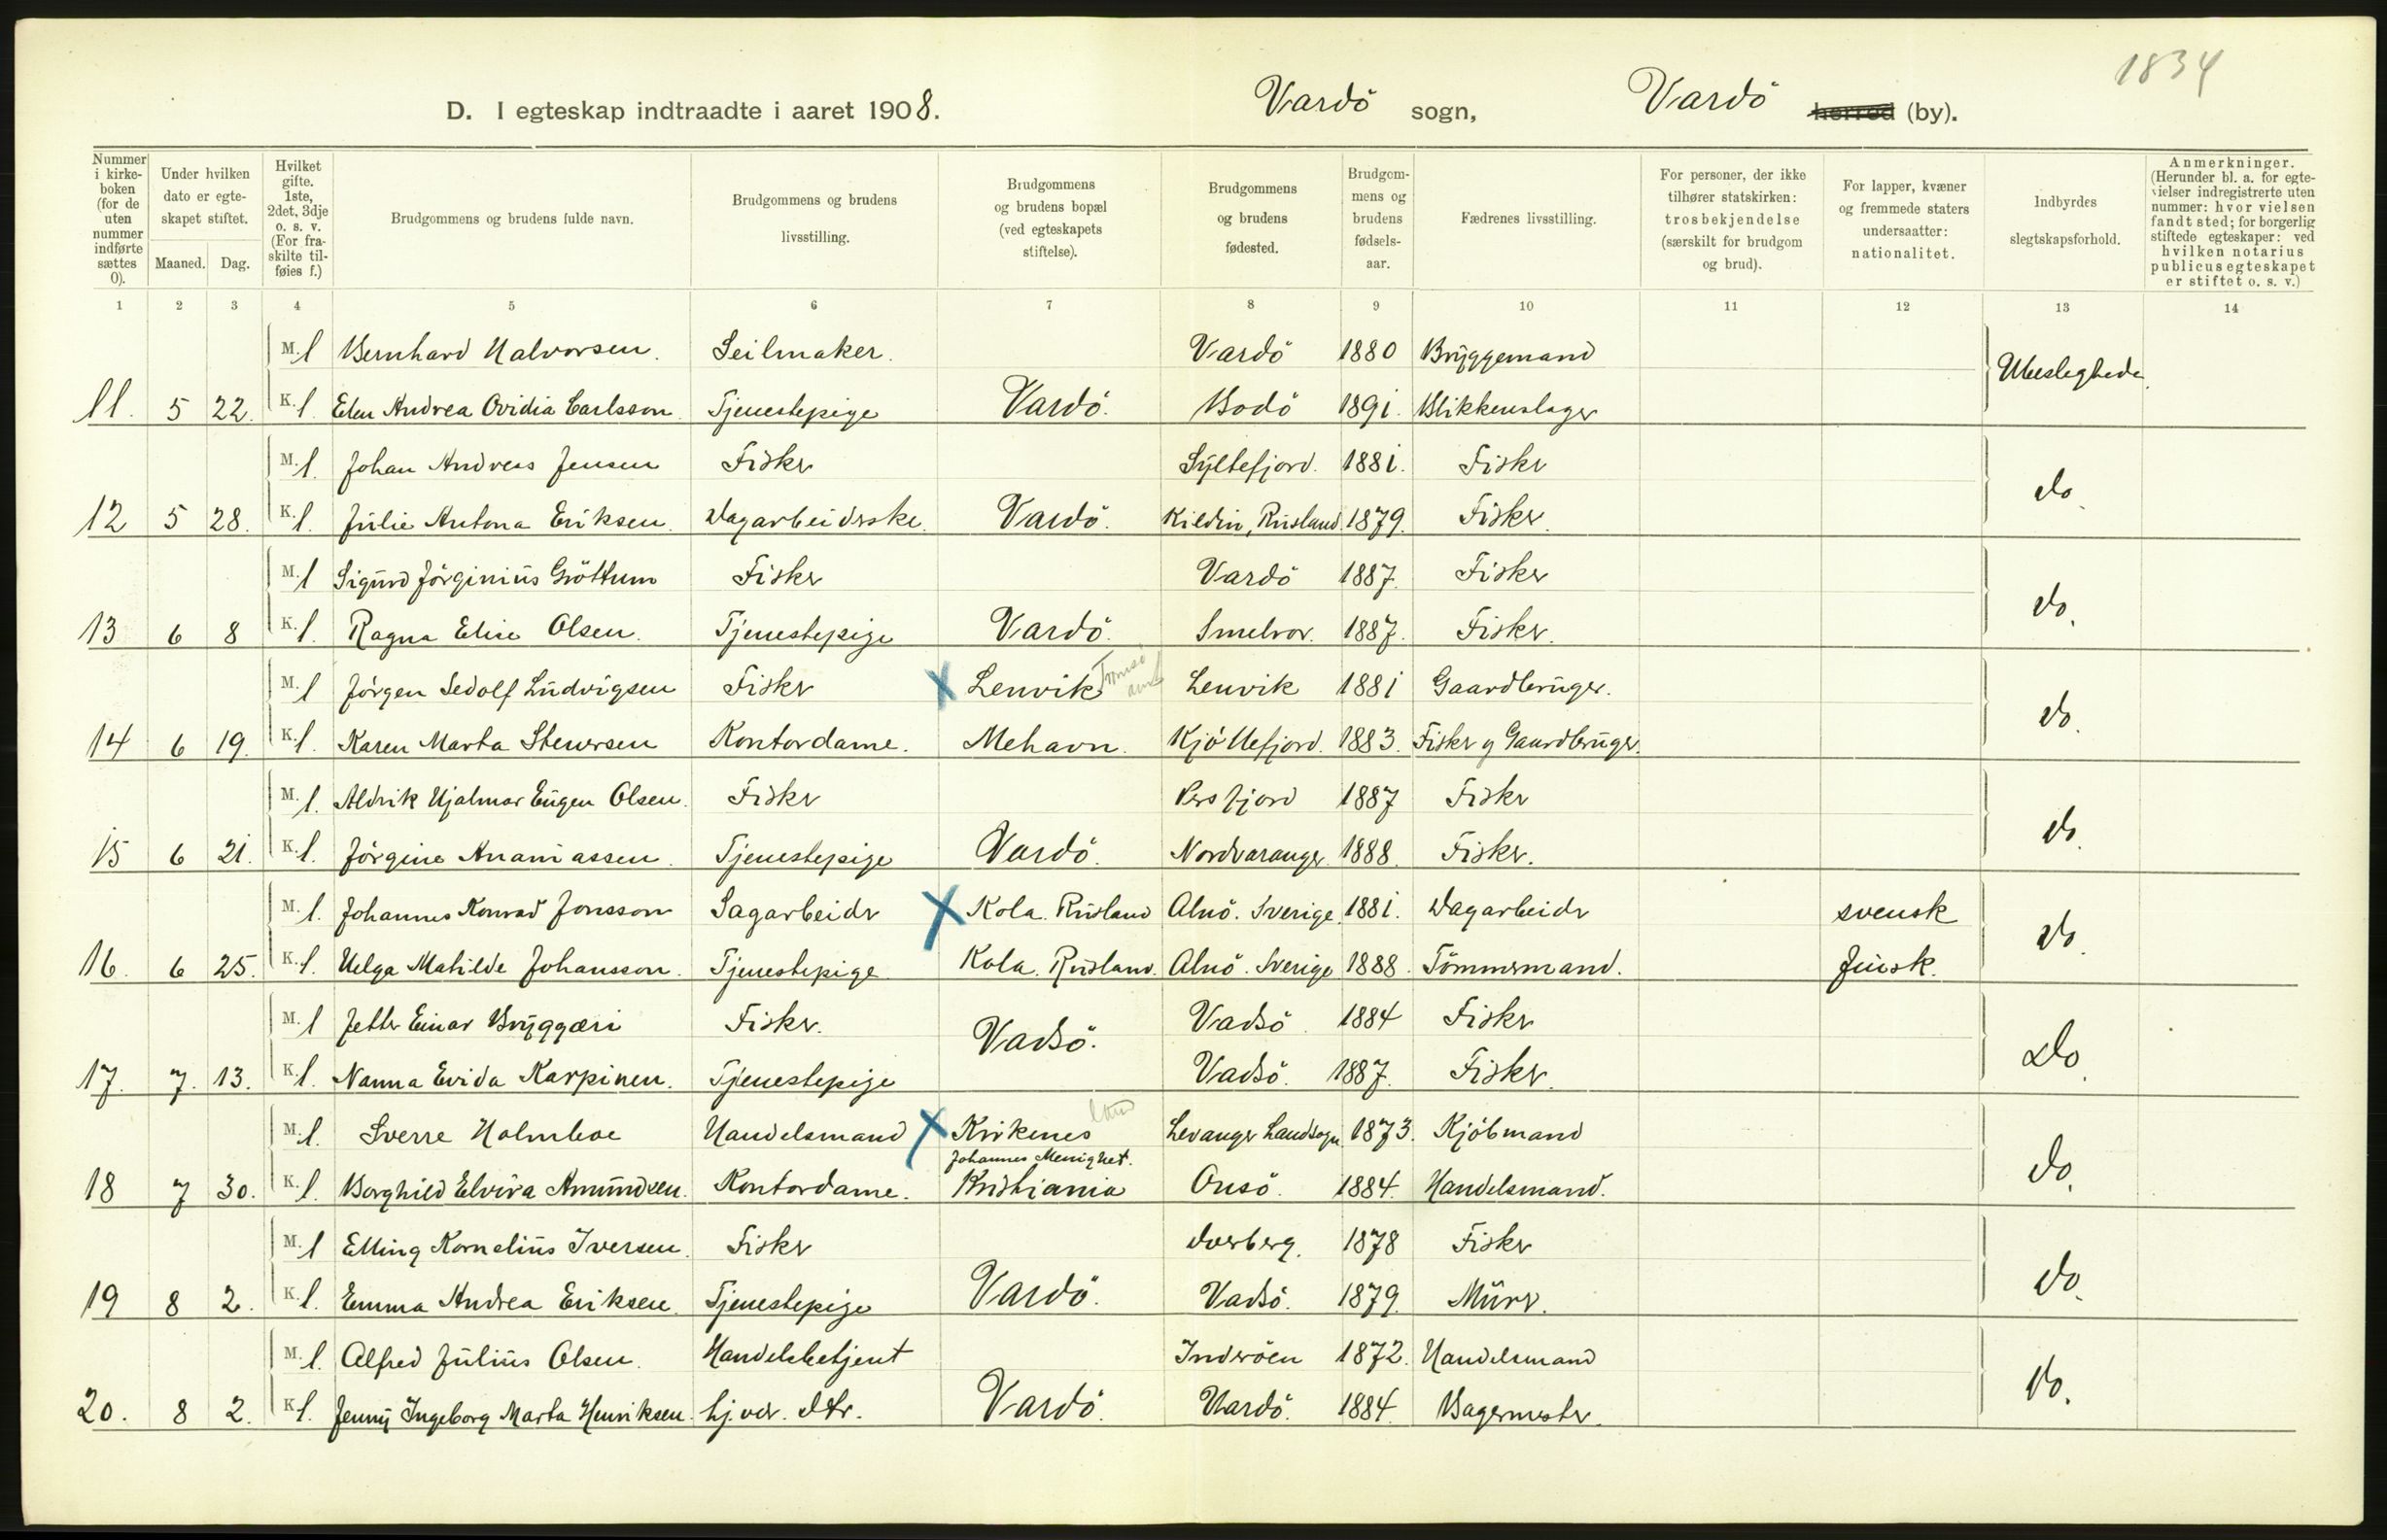 1834
D. I egteskap indtraadte i aaret 1908. Vardö sogn, Vardö herred (by).
Nummer i kirkeboken (for de uten nummer indførte sættes 0).
Under hvilken dato er egteskapet stiftet.
Maaned. Dag.
Hvilket gifte. 1ste, 2det, 3dje o. s. v. (For fraskilte tilføies f.)
Brudgommens og brudens fulde navn.
Brudgommens og brudens livsstilling.
Brudgommens og brudens bopæl (ved egteskapets stiftelse).
Brudgommens og brudens fødested.
Brudgommens og brudens fødselsaar.
Fædrenes livsstilling.
For personer, der ikke tilhører statskirken: trosbekjendelse (særskilt for brudgom og brud).
For lapper, kvæner og fremmede staters undersaatter: nationalitet.
Indbyrdes slegtskapsforhold.
Anmerkninger. (Herunder bl. a. for egtevielser indregistrerte uten nummer: hvor vielsen fandt sted; for borgerlig stiftede egteskaper: ved hvilken notarius publicus egteskapet er stiftet o. s. v.)
1 2 3 4 5 6 7 8 9 10 11 12 13 14
M. 1 Bernhard Halvorsen. Seilmaker. Vardö 1880 Bryggemand Ubeslegtede
11. 5 22. K. 1. Elen Andrea Ovidia Carlsson Tjenestepige Vardö. Bodö 1891. Blikkenslager
M. 1. Johan Andreas Jensen Fisker Syltefjord. 1881. Fisker do.
12 5 28. K. 1. Julie Antona Eriksen. Dagarbeiderske. Vardö. Kildin, Rusland. 1879. Fisker.
M. 1 Sigurd Jörginius Gröttum Fisker Vardö 1887. Fisker do.
13 6 8 K. 1. Ragna Elise Olsen. Tjenestepige Vardö. Smelror. 1887. Fisker.
M. 1 Jörgen Sedolf Ludvigsen Fisker X Lenvik Tromsö amt Lenvik 1881 Gaardbruger. do.
14 6 19. K. 1. Karen Marta Stenersen Kontordame. Mehavn. Kjöllefjord. 1883. Fisker og Gaardbruger.
M. 1. Aldrik Hjalmar Eugen Olsen. Fisker Persfjord 1887 Fisker do.
15 6 21. K. 1. Jörgine Ananiassen. Tjenestepige Vardö. Nordvaranger. 1888. Fisker.
M. 1. Johannes Konrad Jonsson Sagarbeider X Kola. Rusland Alnö. Sverige. 1881. Dagarbeider svensk do.
16. 6 25. K. 1. Helga Matilde Johansson. Tjenestepige Kola. Rusland. Alnö. Sverige 1888. Tömmermand. finsk.
M. 1 Petter Einar Bryggæri Fisker. Vadsö. Vadsö 1884 Fisker Do.
17. 7. 13. K. 1. Nanna Evida Karpinen. Tjenestepige Vadsö. 1887. Fisker.
M. 1. Sverre Holmboe Handelsmand X Kirkenes Levanger Landsogn 1873. Kjöbmand do.
18 7 30. K. 1. Borghild Elvira Amundsen. Kontordame. Johannes Menighet. Kristiania Onsö. 1884. Handelsmand.
M. 1 Elling Kornelius Iversen. Fisker Dverberg. 1878 Fisker do.
19 8 2. K. 1. Emma Andrea Eriksen. Tjenestepige Vardö. Vadsö. 1879. Murer.
M. 1. Alfred Julius Olsen. Handelsbetjent Inderöen 1872. Handelsmand do.
20. 8 2. K 1. Jenny Ingeborg Marta Henriksen. hj. vær. dtr. Vardö. Vardö. 1884. Bagermester.